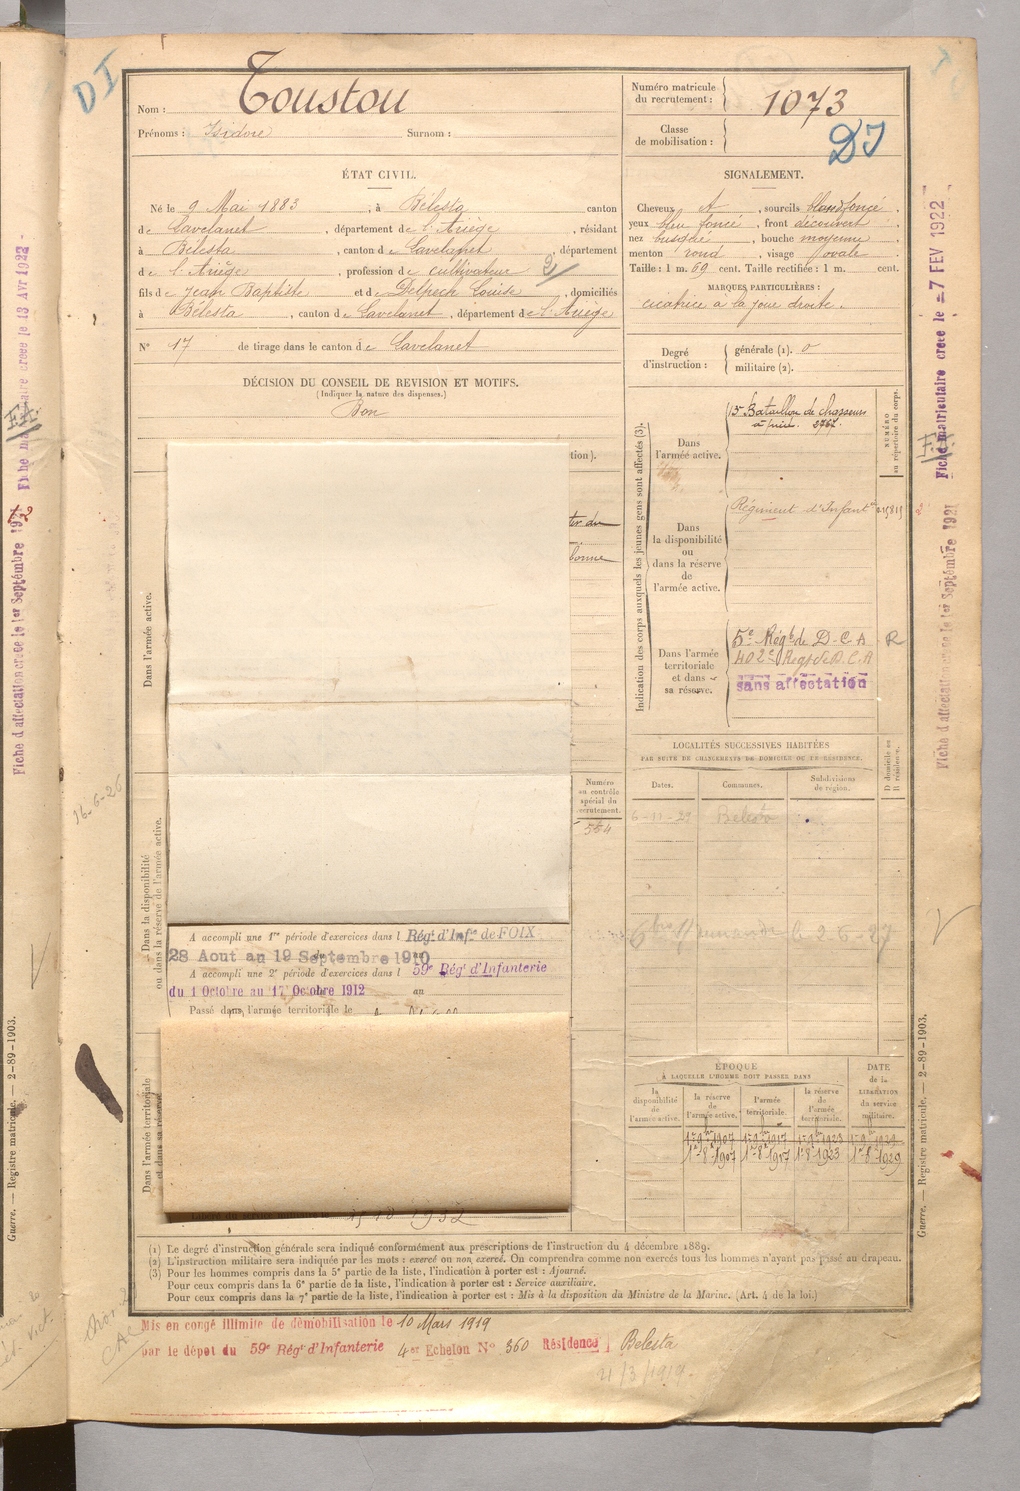 DI
Nom : Toustou
Prénoms : Isidore Surnom :
Numéro matricule
du recrutement : 1073
Classe
de mobilisation :
DI
ÉTAT CIVIL.
Né le 9 Mai 1883, à Bélesta canton
de Lavelanet, département de l'Ariège, résidant
à Bélesta, canton de Lavelanet, département
de l'Ariège, profession de cultivateur 2
fils de Jean Baptiste et de Delpech Louise, domiciliés
à Bélesta, canton de Lavelanet, département de l'Ariège
N° 17 de tirage dans le canton de Lavelanet
DÉCISION DU CONSEIL DE REVISION ET MOTIFS.
(Indiquer la nature des dispenses.)
Bon
tion).
SIGNALEMENT.
Cheveux et, sourcils blond foncé.
yeux bleu foncé, front découvert
nez busqué, bouche moyenne
menton rond, visage ovale.
Taille : 1 m. 69 cent. Taille rectifiée : 1 m. cent.
MARQUES PARTICULIÈRES :
cicatrice à la joue droite.
Degré
d'instruction :
générale (1). 0
militaire (2).
Indication des corps auxquels les jeunes gens sont affectés (3).
NUMÉRO
au répertoire du corps.
Dans
l'armée active.
15e Bataillon de chasseurs
Dans
la disponibilité
ou
dans la réserve
de
l'armée active.
Régiment d'Infant
Dans l'armée
territoriale
et dans
sa réserve.
5e Régt de D.C.A R
402e Régt de D.C.A
sans affectation
LOCALITÉS SUCCESSIVES HABITÉES
PAR SUITE DE CHANGEMENTS DE DOMICILE OU DE RÉSIDENCE.
Dates.
Communes.
Subdivisions
de région.
D domicile ou
R résidence.
6-11-29 Belesta
Dans l'armée active.
Dans la disponibilité
ou dans la réserve de l'armée active.
Numéro
au contrôle
spécial du
recrutement.
554
A accompli une 1re période d'exercices dans l Régt d'Infie de FOIX
28 Aout au 19 Septembre 1910
A accompli une 2e période d'exercices dans l 59e Régt d'Infanterie
du 1 Octobre au 17 Octobre 1912 au
Passé dans l'armée territoriale le
Dans l'armée territoriale
et dans sa réserve
ÉPOQUE
À LAQUELLE L'HOMME DOIT PASSER DANS
DATE
de la
LIBÉRATION
du service
militaire.
la
disponibilité
de
l'armée active.
la réserve
de
l'armée active.
l'armée
territoriale.
la réserve
de
l'armée
territoriale.
1er 8bre 1907 1er 8bre 1917 1er 8bre 1923 1er 8bre 1929
(1) Le degré d'instruction générale sera indiqué conformément aux prescriptions de l'instruction du 4 décembre 1889.
(2) L'instruction militaire sera indiquée par les mots : exercé ou non exercé. On comprendra comme non exercés tous les hommes n'ayant pas passé au drapeau.
(3) Pour les hommes compris dans la 5e partie de la liste, l'indication à porter est : Ajourné.
Pour ceux compris dans la 6e partie de la liste, l'indication à porter est : Service auxiliaire.
Pour ceux compris dans la 7e partie de la liste, l'indication à porter est : Mis à la disposition du Ministre de la Marine. (Art. 4 de la loi.)
Mis en congé illimité de démobilisation le 10 Mars 1919
par le dépôt du 59e Régt d'Infanterie 4er Echelon N° 360 Résidence Belesta
21/3/1919
16-6-26
Fiche matriculaire créée le 7 FEV 1922
Fiche d'affectation créée le 1er Septembre 1921
Fiche matriculaire créée le 13 Avr 1922
Fiche d'affectation créée le 1er Septembre 1921
Guerre. — Registre matricule. — 2-89-1903.
Guerre. — Registre matricule. — 2-89-1903.